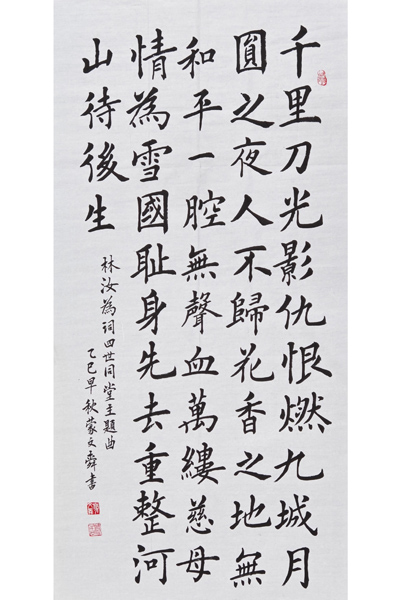 千里刀光影仇恨燃九城月
圓之夜人不歸花香之地無
和平一腔無聲血萬縷慈母
情為雪國恥身先去重整河
山待後生
林汝為詞四世同堂主題曲
乙巳早秋蒙文舜書